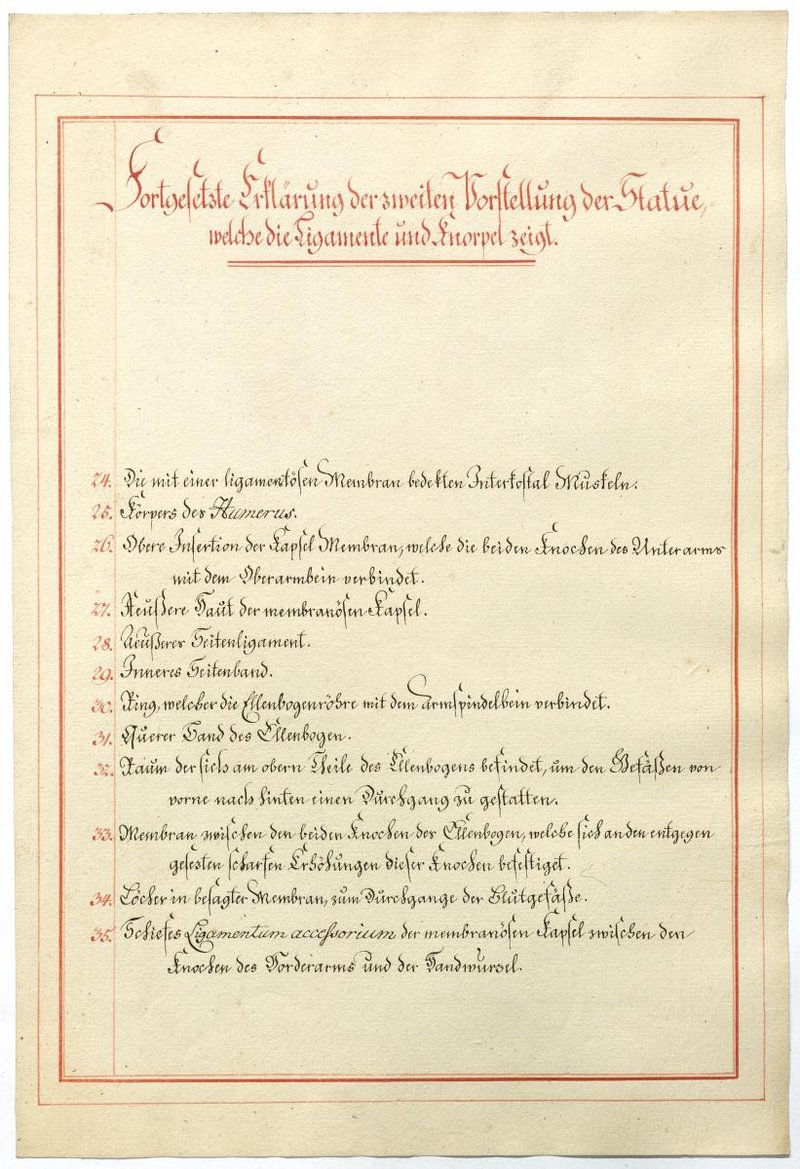 Fortgesetzte Erklärung der zweiten Vorstellung der Statue,
welche die Ligamente und Knorpel zeigt.
24. Die mit einer ligamentösen Membran bedekten Interkostal Muskeln.
25. Körpers des Humerus.
26. Obere Insertion der Kapsel Membran, welche die beiden Knochen des Unterarms
mit dem Oberarmbein verbindet.
27. Aeußere Haut der membranösen Kapsel.
28. Aeußeres Seitenligament.
29. Inneres Seitenband.
30. Ring, welcher die Ellenbogenröhre mit dem Armspindelbein verbindet.
31. Querer Band des Ellenbogen.
32. Raum der sich am obern Theile des Ellenbogens befindet, um den Gefäßen von
vorne nach hinten einen Durchgang zu gestatten.
33. Membran zwischen den beiden Knochen der Ellenbogen, welche sich an den entgegen
gesezten scharfen Erhöhungen dieser Knochen befestiget.
34. Löcher in besagter Membran, zum Durchgange der Blutgefäße.
35. Schiefes Ligamentum accessorium der membranösen Kapsel zwischen den
Knochen des Vorderarms und der Handwurzel.